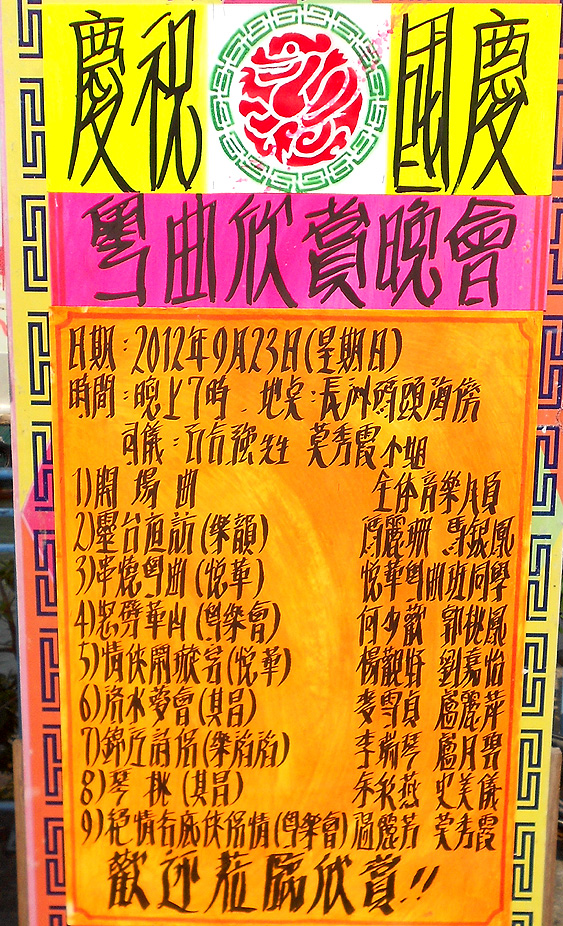 慶祝 國慶
粵曲欣賞晚會
日期:2012年9月23日(星期日)
時間:晚上7時 地点:長洲碼頭海傍
司儀: 強先生 莫秀霞小姐
1)開場曲 全体音樂人員
2)樓台 訪(樂韻) 馮麗珊 馬銀鳳
3)串燒粵曲(悅華) 悅華粵曲班同學
4)怒劈華山(粵樂會) 何少歡 郭桃鳳
5)情俠鬧璇宮(悅華) 楊觀好 劉嘉怡
6)洛水夢會(其昌) 麥雪貞 盧麗萍
7)錦 詩侶(樂韻) 李瑞琴 盧月
8)琴桃(其昌) 余秋燕 史美儀
9)絕情谷底俠侶情(粵樂會) 溫麗芳 莫秀霞
歡迎蒞臨欣賞!!